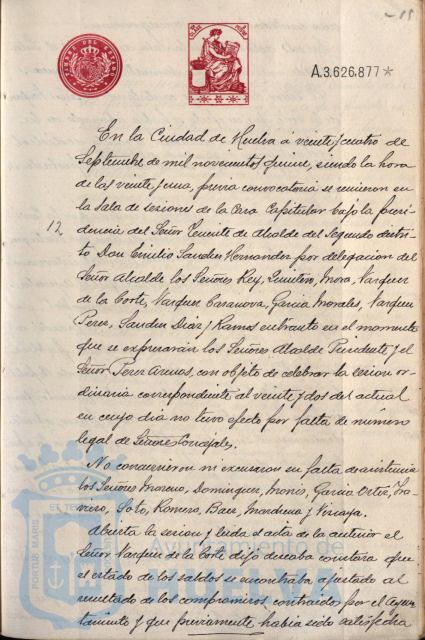 -15
TIMBRE DEL ESTADO
A.3.626.877*
En la Ciudad de Huelva á veinte y cuatro de
Septiembre de mil novecientos quince, siendo la hora
de las veinte y una, previa convocatoria se reunieron en
la Sala de sesiones de la Casa Capitular bajo la presi-
12
dencia del Señor Teniente de Alcalde del Segundo distri-
to Don Emilio Sanchez Hernandez por delegacion del
Señor Alcalde los Señores Rey, Quintero, Mora, Vazquez
de la Corte, Vazquez Casanova, Garcia Morales, Vazquez
Perez, Sanchez Diaz y Ramos entrando en el momento
que se expresarán los Señores Alcalde Presidente y el
Señor Perez Arenas, con objeto de celebrar la sesion or-
dinaria correspondiente al veinte y dos del actual
en cuyo dia no tuvo efecto por falta de número
legal de Señores Concejales.
No concurrieron ni excusaron su falta de asistencia
los Señores Moreno, Dominguez, Garcia Ortiz,
Soto, Romero, Baez, y Vizcaya.
Abierta la sesion y leida el acta de la anterior el
Señor Vazquez de la Corte dijo deseaba constara que
el estado de los saldos se encontraba ajustado al
resultado de los compromisos contraidos por el Ayun-
tamiento y que previamente habia sido satisfecha
PORTUS MARIS